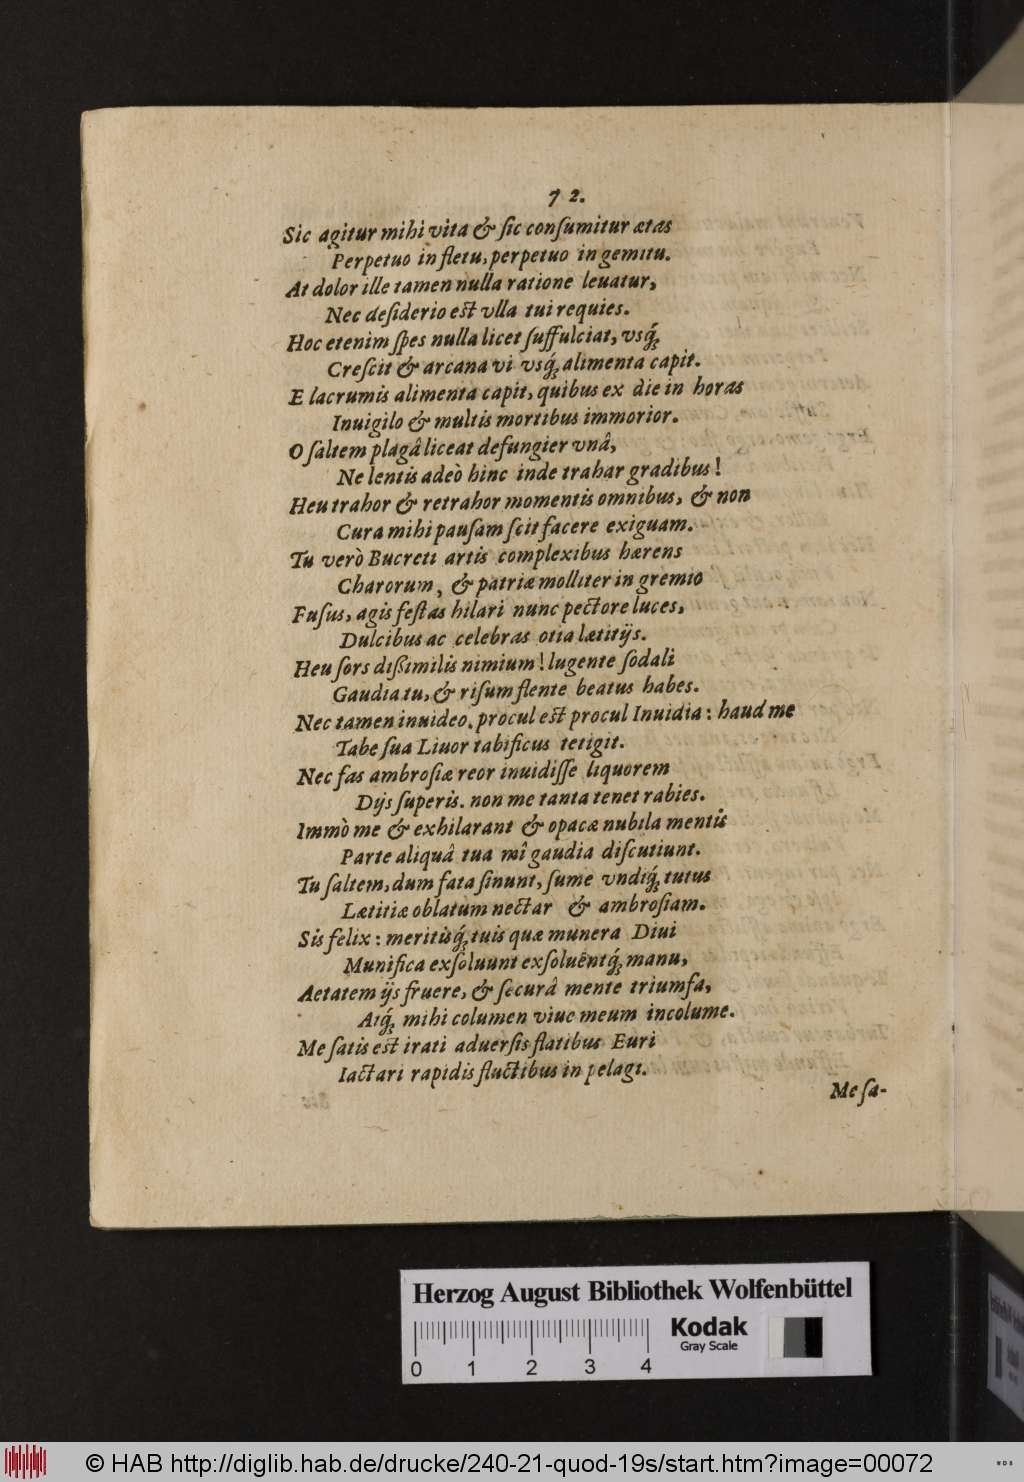 72.
Sic agitur mihi vita & ſic conſumitur ætas
Perpetuo in fletu, perpetuo in gemitu.
At dolor ille tamen nulla ratione leuatur,
Nec deſiderio est vlla tui requies.
Hoc etenim ſpes nulla licet ſuffulciat, vsq́;
Creſcit & arcana vi vsq́; alimenta capit.
E lacrumis alimenta capit, quibus ex die in horas
Inuigilo & multis mortibus immorior.
O ſaltem plagâ liceat defungier vnâ,
Ne lentis adeò hinc inde trahar gradibus!
Heu trahor & retrahor momentis omnibus, & non
Cura mihi pauſam ſcit facere exiguam.
Tu verò Bucreti artis complexibus hærens
Charorum, & patriæ molliter in gremio
Fuſus, agis feſtas hilari nunc pectore luces,
Dulcibus ac celebras otia lætitijs.
Heu ſors dißimilis nimium! lugente ſodali
Gaudia tu, & riſum flente beatus habes.
Nec tamen inuideo. procul est procul Inuidia: haud me
Tabe ſua Liuor tabificus tetigit.
Nec fas ambroſiæ reor inuidiſſe liquorem
Dijs ſuperis. non me tanta tenet rabies.
Immò me & exhilarant & opacæ nubila mentis
Parte aliquâ tua mî gaudia diſcutiunt.
Tu ſaltem, dum fata ſinunt, ſume vndiq́; tutus
Lætitiæ oblatum nectar & ambroſiam.
Sis felix: meritisq́; tuis quæ munera Diui
Munifica exſoluunt exſoluêntq́; manu,
Aetatem ijs fruere, & ſecurâ mente triumfa,
Atq́; mihi columen viue meum incolume.
Me ſatis est irati aduerſis flatibus Euri
Iactari rapidis fluctibus in pelagi.
Me ſa-
Herzog August Bibliothek Wolfenbüttel
Kodak
Gray Scale
0 1 2 3 4
© HAB http://diglib.hab.de/drucke/240-21-quod-19s/start.htm?image=00072